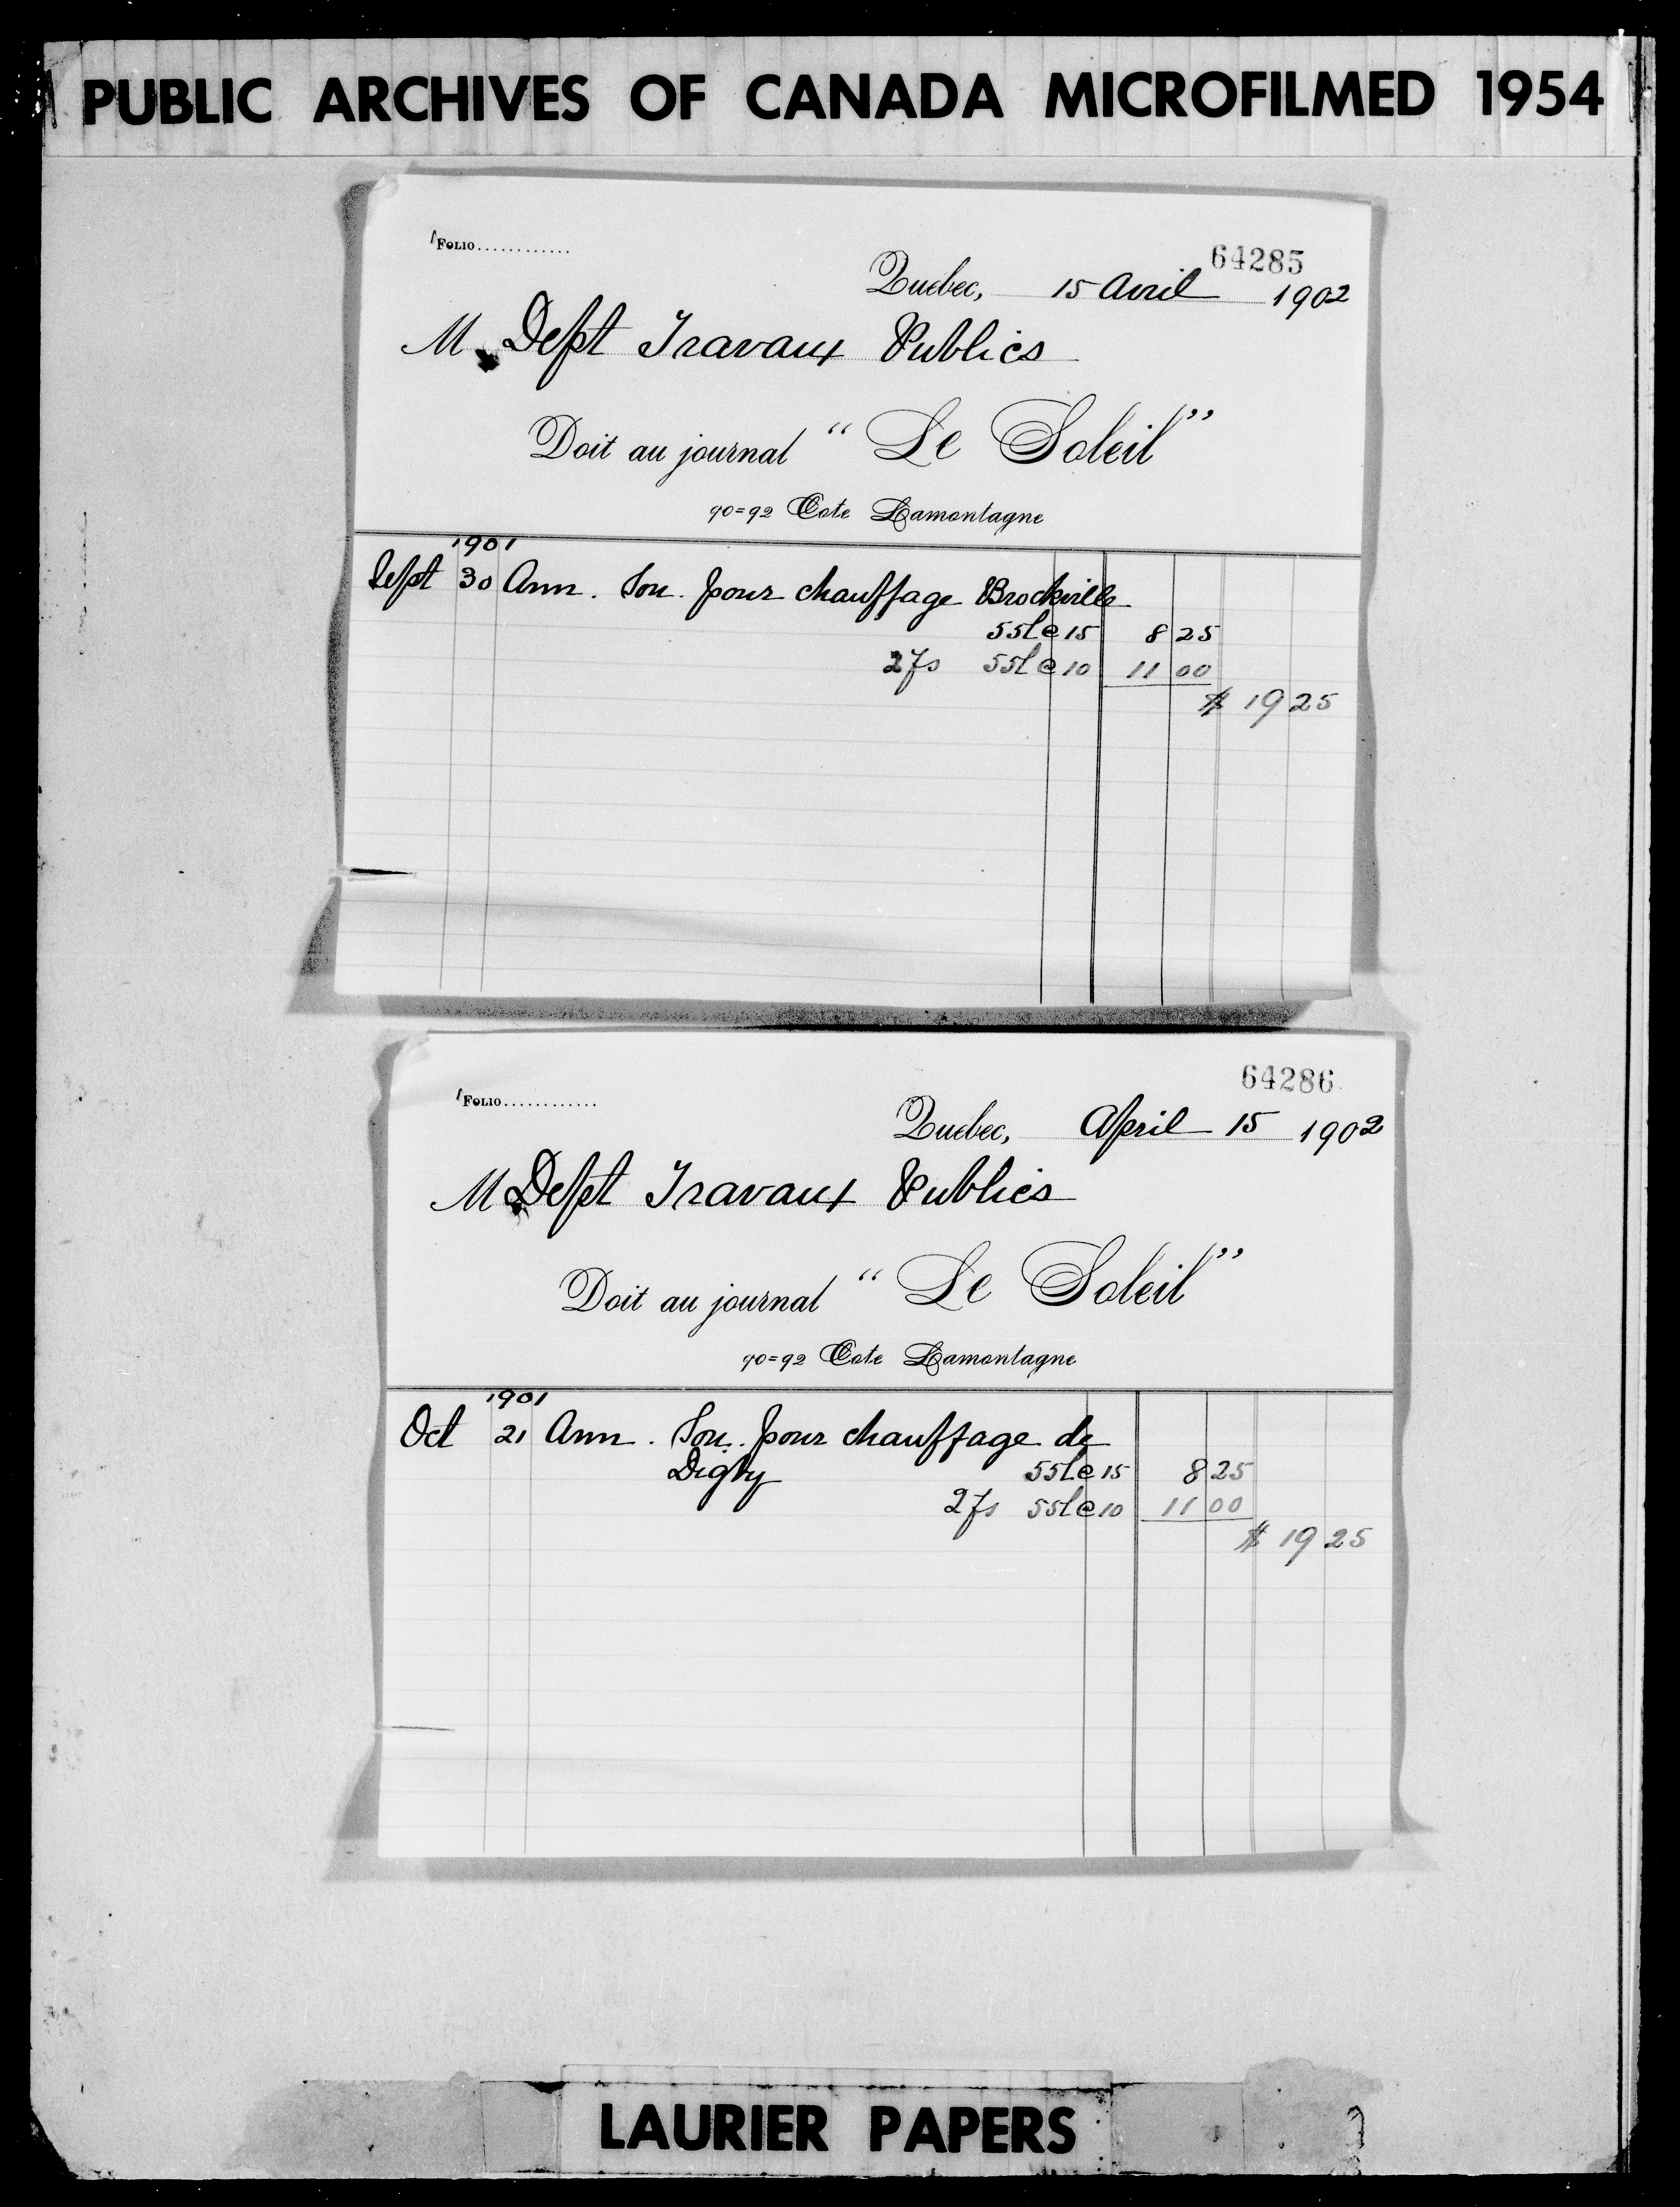 PUBLIC ARCHIVES OF CANADA MICROFILMED 1954
FOLIO............
64285
Quebec, 15 Avril 1902
M Dept Travaux Publics
Doit au journal “Le Soleil”
90=92 Cote Lamontagne
1901
Sept 30 Ann. Sou. pour chauffage Brockville
55l @ 15 8 25
2fs 55l @ 10 11 00
$ 19 25
64286
FOLIO............
Quebec, April 15 1902
M Dept Travaux Publics
Doit au journal “Le Soleil”
90=92 Cote Lamontagne
1901
Oct 21 Ann. Sou. pour chauffage de
Digby 55l @ 15 8 25
2fs 55l @ 10 11 00
$ 19 25
LAURIER PAPERS